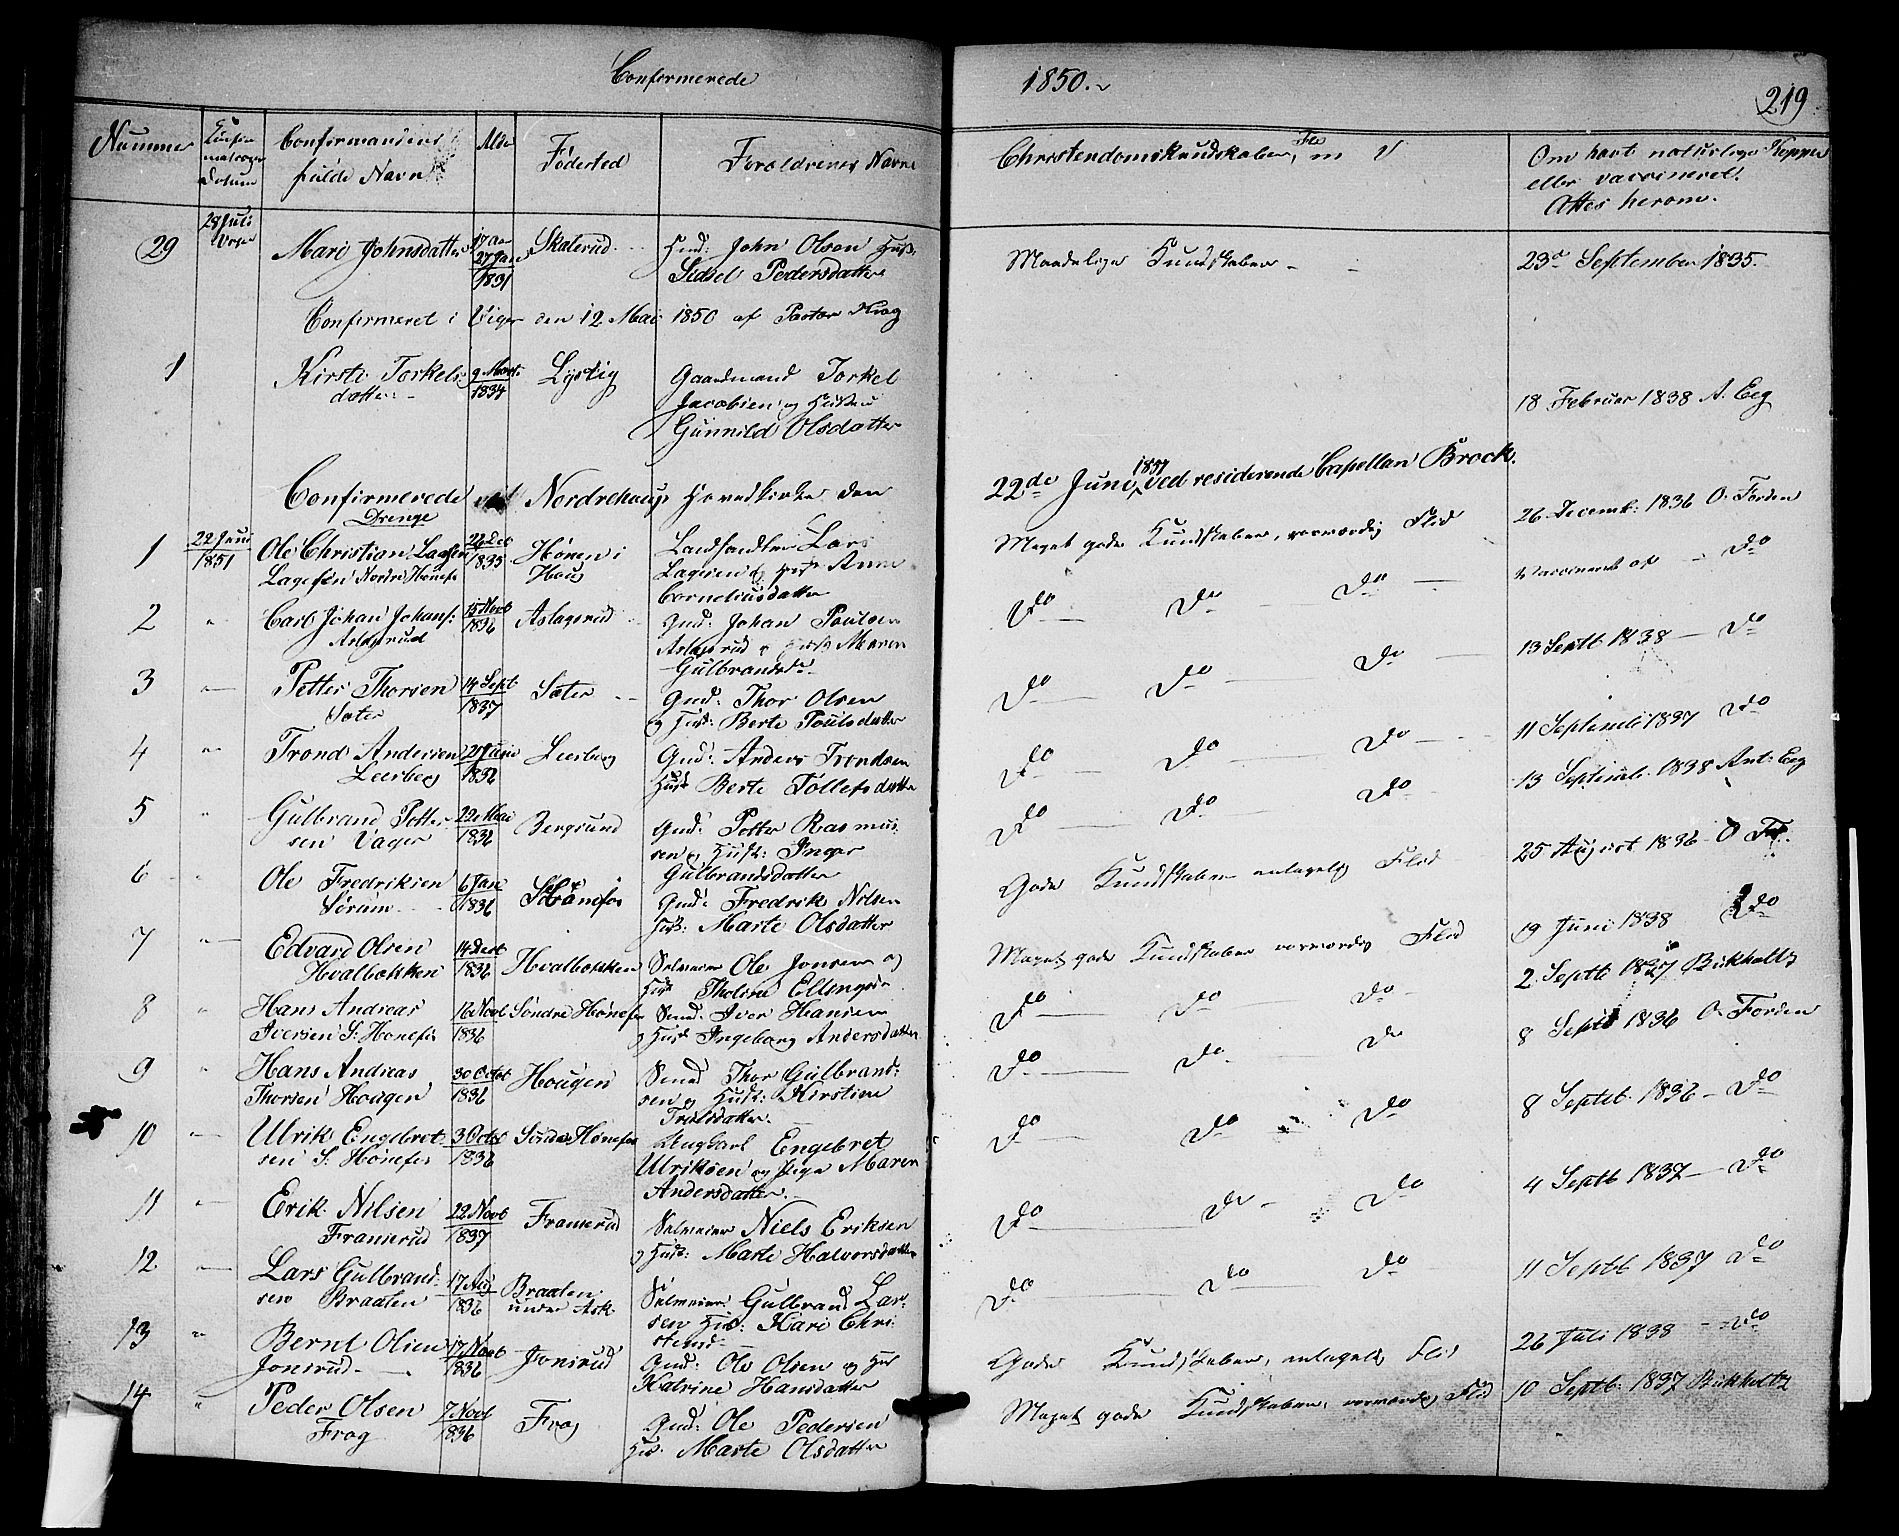 Confirmerede
1850.
219
Nummer
Confirmandens
fulde Navn
Alder
Fødested
Forældrenes Navne
Christendomskundskaber, Flid
Om havt naturlige Kopper
eller vaccineret.
Attes herom.
29
28 Juli
Mari Johnsdatter
27 Jan
1831
Skalerud
John Olsen
Sidsel Pedersdatter
Maadelige Kundskaber
23de September 1835.
Confirmeret i Viger den 12 Mai 1850 af Pastor Krag
1
Kirsti Torkels
datter
9 Marts
1834
Lystig
Gaardmand Torkel
Jacobsen og Hustru
Gunnild Olsdatter
18 Februar 1838 A. Eeg
Confirmerede Nordrehougs Hovedkirke den
22de Juni 1851 ved residerende Capellan Brock.
Drenge
1
22 Juni
1851
Ole Christian Larsen
Lagesen Nordre Hønefos
26 Dec
1835
Hønen i
Houg
Landhandler Lars
Lagesen og Hust Anne
Corneliusdatter
Meget gode Kundskaber, Flid
26 Decemb: 1836 O. Forden
2
Carl Johan Johans:
Aslagsrud
15 Novb
1836
Aslagsrud
Gud: Johan Poulsen
Aslagsrud og Hust Maren
Gulbrandsdr
Do Do Do
Vaccineret af Do
3
Petter Thorsen
Sæter
14 Sept
1837
Sæter
Gud: Thor Olsen
og Hust: Berte Poulsdatter
Do Do Do
13 Septb 1838 Do
4
Trond Andersen
Leerberg
1836
Leerberg
Gud: Anders Trondsen
Hust Berte Tollefsdatter
Do Do Do
11 Septemb 1837 Do
5
Gulbrand Petter
sen Vager
22 Mai
1836
Bergsund
Gud: Petter Rasmus
sen og Hust: Inger
Gulbrandsdatter
Do Do Do
13 Septemb. 1838 Ant: Eeg
6
Ole Fredriksen
Sørum
6 Jan
1836
S Hønefos
Gud: Fredrik Nilsen
Hust: Marte Olsdatter
Gode Kundskaber Flid
25 August 1836 O. For.
7
Edvard Olsen
Hvalbækken
1836
Hvalbækken
Ole Jonsen og
Hust Tholine Ellingsdr
Meget gode Kundskaber Flid
19 Juni 1838 Do
8
Hans Andreas
Iversen S: Hønefos
1836
Søndre Hønefos
Smed: Iver Hansen
og Hust Ingeborg Andersdatter
Do Do Do
2 Septb 1837 Bukholtz
9
Hans Andreas
Thorsen Hougen
30 Octob
1836
Hougen
Smed Thor Gulbrand:
sen og Hust: Kirstine
Trulsdatter
Do Do Do
8 Septb 1836 O. Forden
10
Ulrik Engebret
sen S: Hønefos
3 Octb
1836
Søndre Hønefos
Ungkarl Engebret
Ulriksen og Pige Maren
Andersdatter
Do Do Do
8 Septbb. 1836 Do
11
Erik Nilsen
Framerud
22 Novb
1837
Framerud
Niels Eriksen
og Hust: Marte Halvorsdatter
Do Do Do
4 Septb 1837 Do
12
Lars Gulbrand:
sen Braaten
17 Aug
1836
Braaten
under Ask
Gulbrand Lar:
sen Hus: Kari Chri
stensd
Do Do Do
11 Septb 1837 Do
13
Bernt Olsen
Jonsrud
17 Novb
1836
Jonsrud
Gud: Ole Olsen og Hust
Katrine Hansdatter
Gode Kundskaber, Flid
26 Juli 1838 Do
14
Peder Olsen
Frog
7 Novb
1836
Frog
Gud: Ole Pedersen
Hus: Marte Olsdatter
Meget gode Kundskaber, Flid
10 Septb. 1837 Bukholtz